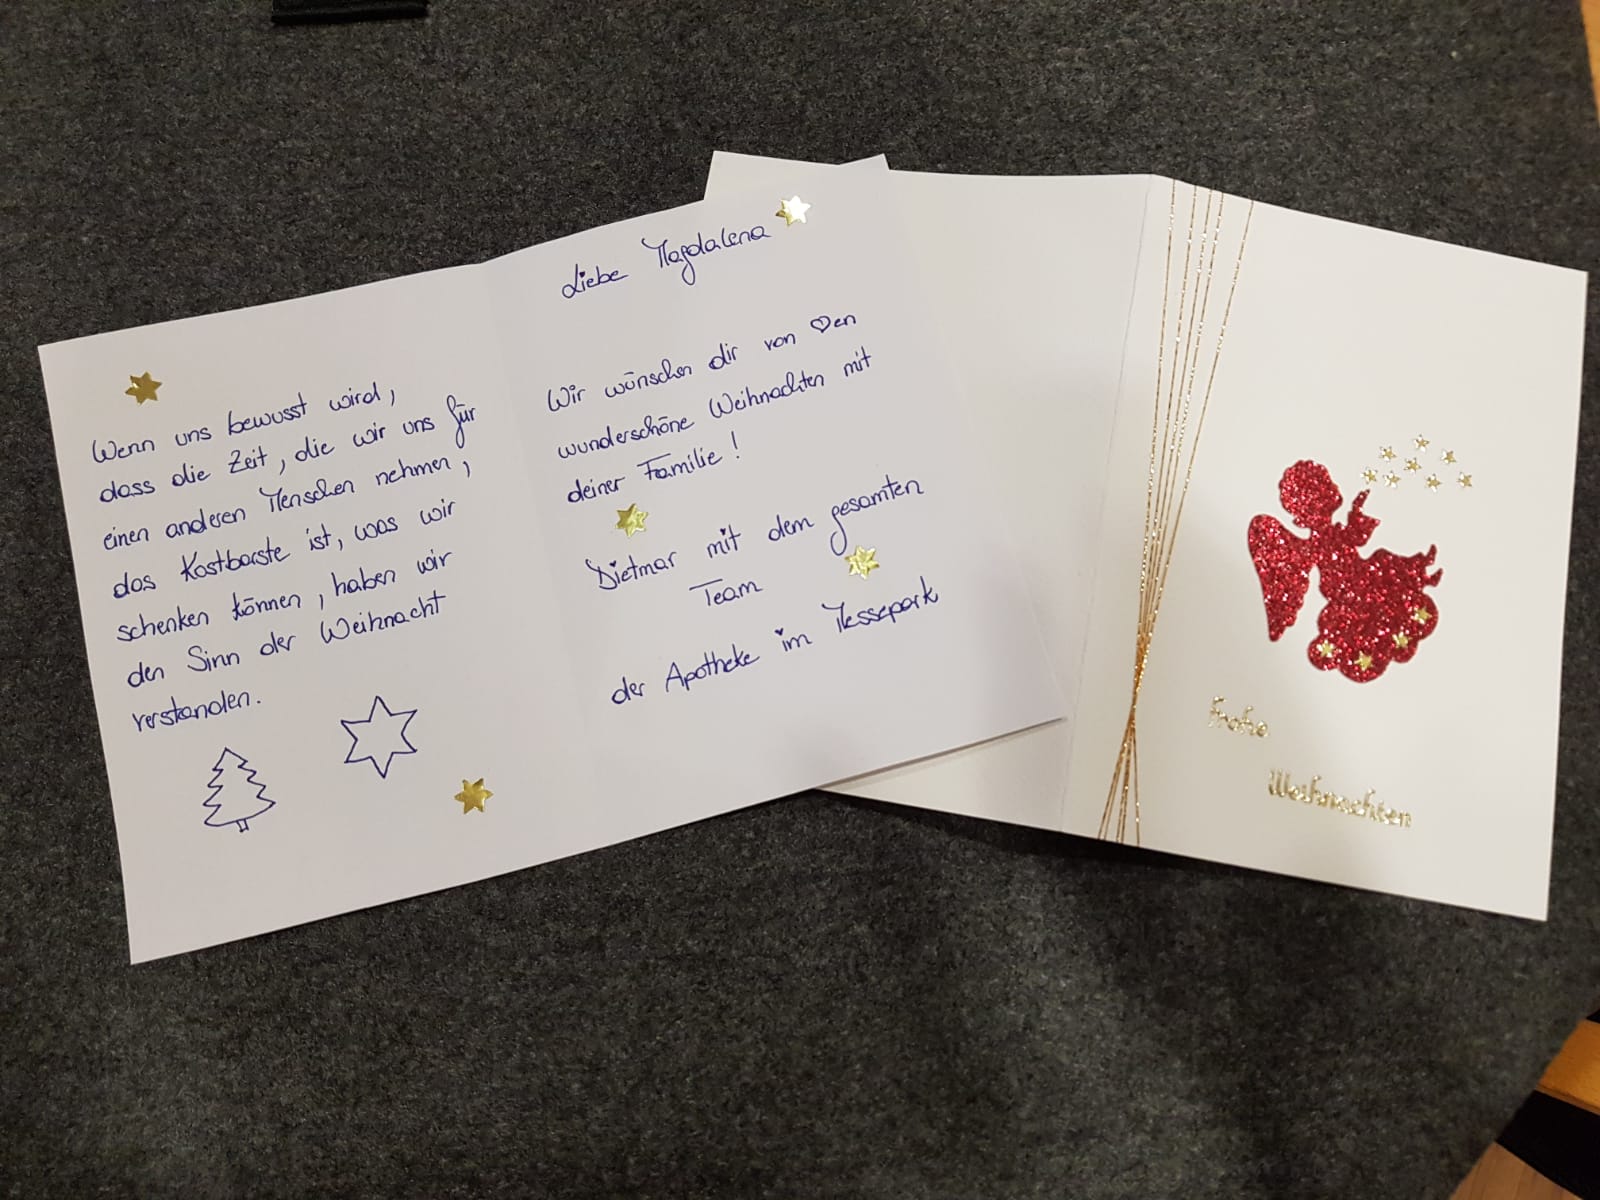 Wenn uns bewusst wird,
dass die Zeit, die wir uns für
einen anderen Menschen nehmen,
das Kostbarste ist, was wir
schenken können, haben wir
den Sinn der Weihnacht
verstanden.
Liebe Magdalena
Wir wünschen dir von ♡en
wunderschöne Weihnachten mit
deiner Familie!
Dietmar mit dem gesamten
Team
der Apotheke im Messepark
Frohe
Weihnachten